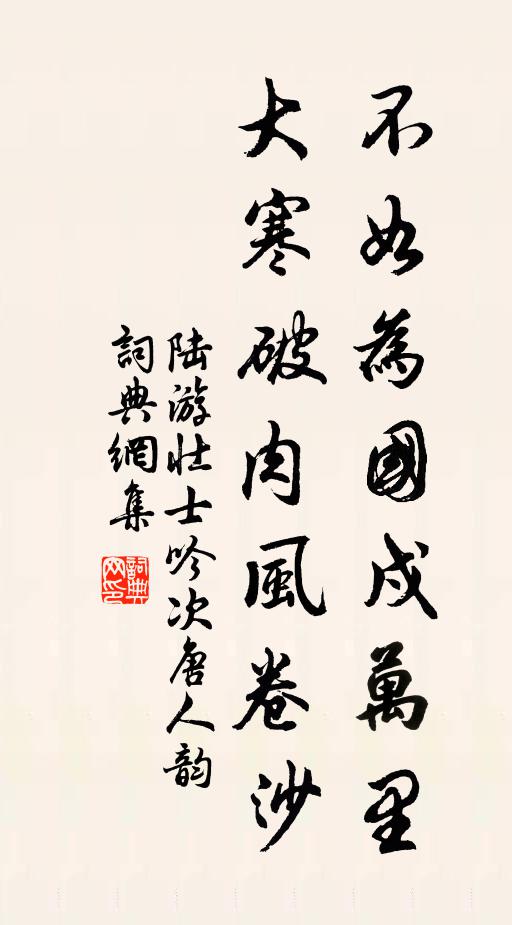 不如為國戍萬里
大寒破肉風卷沙
陆游壮士吟次唐人韵
詞典網集
詞典網印